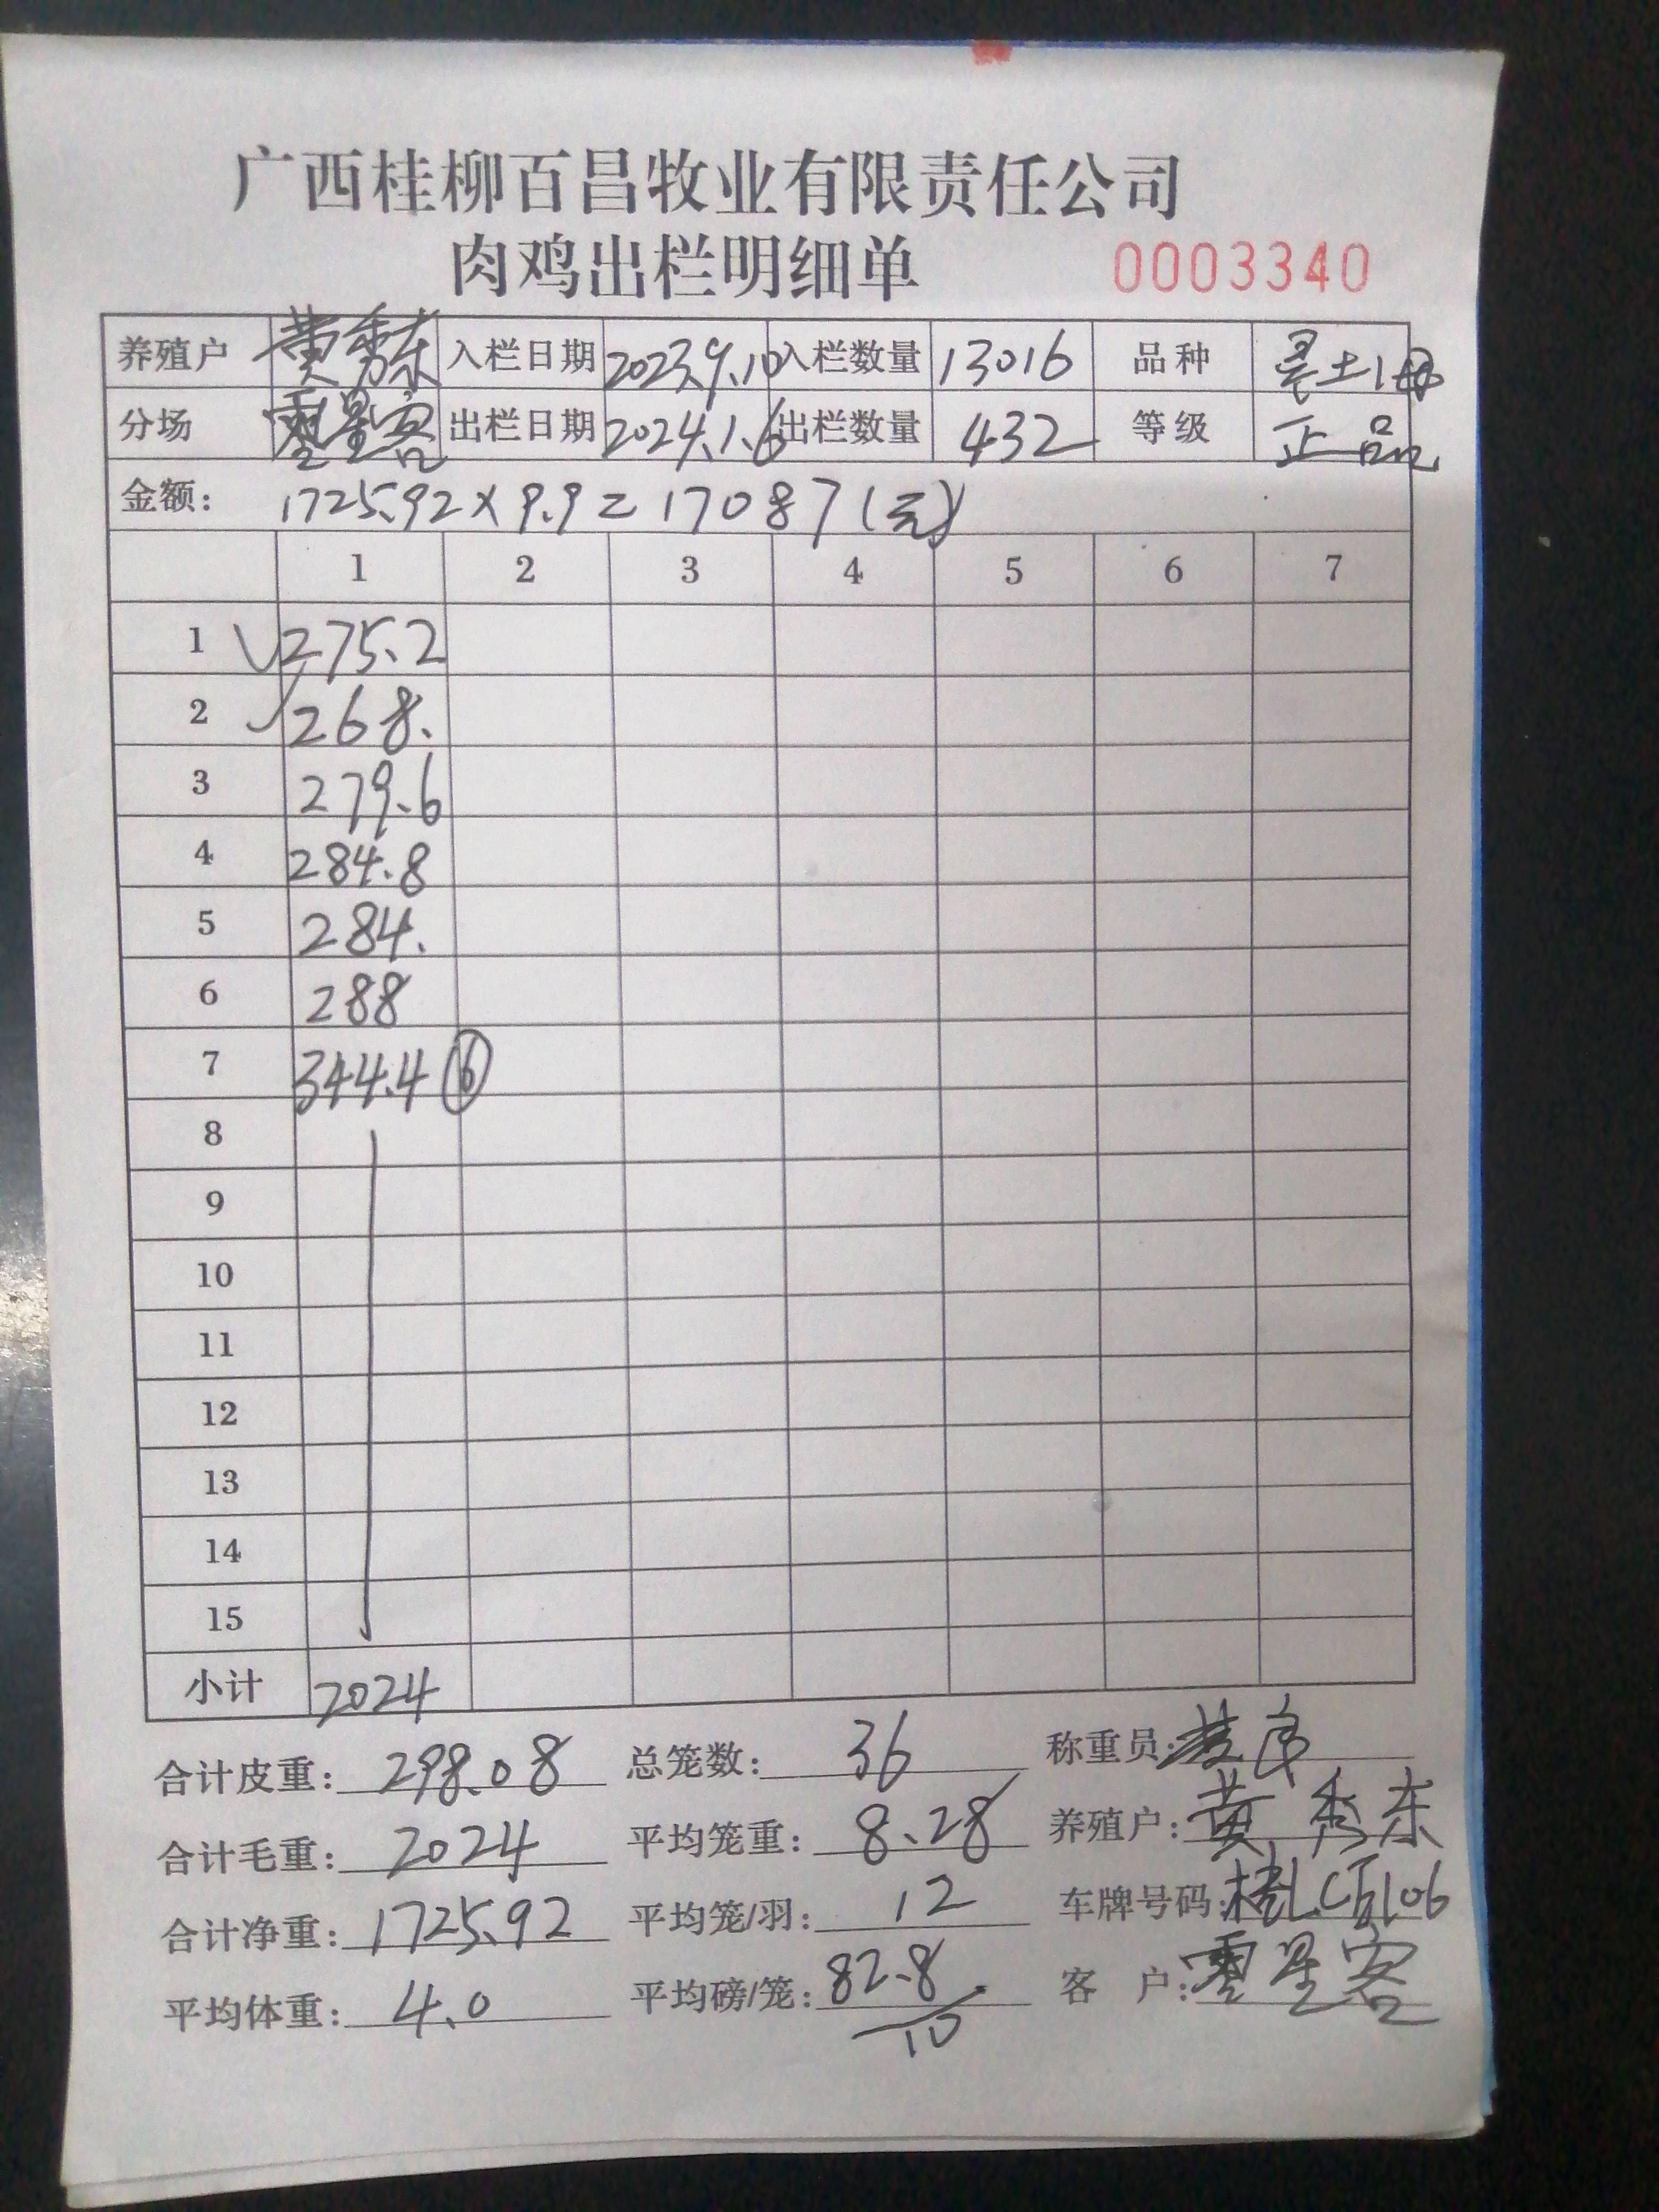 广西桂柳百昌牧业有限责任公司
肉鸡出栏明细单 0003340
养殖户 黄秀东 入栏日期 2023.9.10 入栏数量 13016 品种 土1母
分场 零星客 出栏日期 2024.1.6 出栏数量 432 等级 正品
金额: 1725.92×9.9=17087(元)
1 2 3 4 5 6 7
1 275.2
2 268.
3 279.6
4 284.8
5 284.
6 288
7 344.4 ⑥
8
9
10
11
12
13
14
15
小计 2024
合计皮重: 298.08 总笼数: 36 称重员:
合计毛重: 2024 平均笼重: 8.28 养殖户: 黄秀东
合计净重: 1725.92 平均笼/羽: 12 车牌号码:
平均体重: 4.0 平均磅/笼: 82.8 客 户: 零星客
10